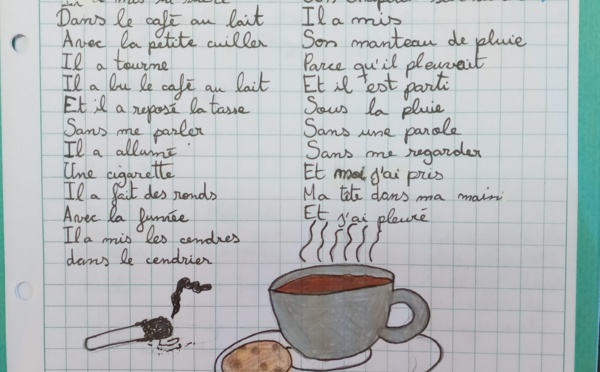 Dans le café au lait
Avec la petite cuiller
Il a tourné
Il a bu le café au lait
Et il a reposé la tasse
Sans me parler
Il a allumé
Une cigarette
Il a fait des ronds
Avec la fumée
Il a mis les cendres
dans le cendrier
Il a mis
Son manteau de pluie
Parce qu'il pleuvait
Et il est parti
Sous la pluie
Sans une parole
Sans me regarder
Et moi j'ai pris
Ma tête dans ma main
Et j'ai pleuré